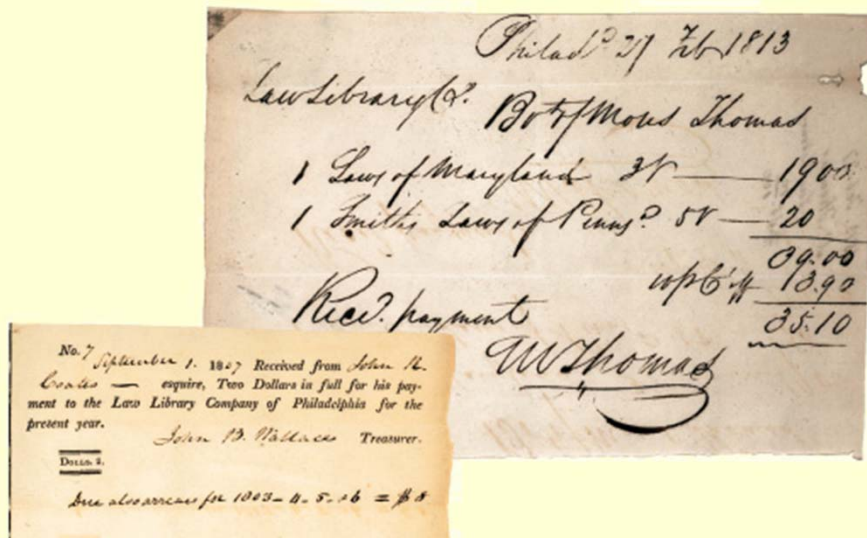 Philadᵃ 27 Feb 1813
Law Library Co.
Bot of Moses Thomas
1 Laws of Maryland 3V — 1900
1 Smith's Laws of Penns.ᵃ 5V — 20
39.00
13.90
35.10
Recd. payment
M Thomas
No. 7 September 1. 1807 Received from John R.
Coates — esquire, Two Dollars in full for his pay-
ment to the Law Library Company of Philadelphia for the
present year.
John B. Wallace Treasurer.
Dolls. 2.
Due also arrears for 1803-4-5-06 = $8